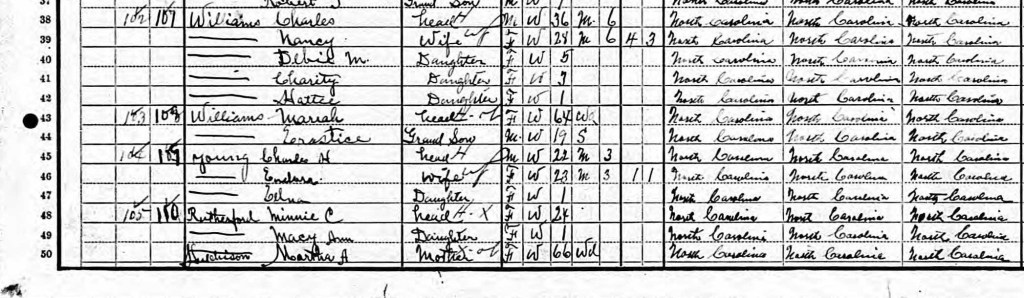 37 Robert Grand Son W 1
38 102 107 Williams Charles head M W 36 M 6 North Carolina North Carolina North Carolina
39 Nancy Wife F W 28 M 6 4 3 North Carolina North Carolina North Carolina
40 M. Daughter F W 5 North Carolina North Carolina North Carolina
41 Charity Daughter F W 3 North Carolina North Carolina North Carolina
42 Hattie Daughter F W 1 North Carolina North Carolina North Carolina
43 103 108 Williams Mariah head F W 64 Wd North Carolina North Carolina North Carolina
44 Erastice Grand Son M W 19 S North Carolina North Carolina North Carolina
45 104 109 Young Charles H head M W 22 M 3 North Carolina North Carolina North Carolina
46 Endora Wife F W 23 M 3 1 1 North Carolina North Carolina North Carolina
47 Edna Daughter F W 1 North Carolina North Carolina North Carolina
48 105 110 Rutherford Minnie C head F W 24 North Carolina North Carolina North Carolina
49 Macy Ann Daughter F W 1 North Carolina North Carolina North Carolina
50 Hutchison Martha A Mother F W 66 Wd North Carolina North Carolina North Carolina